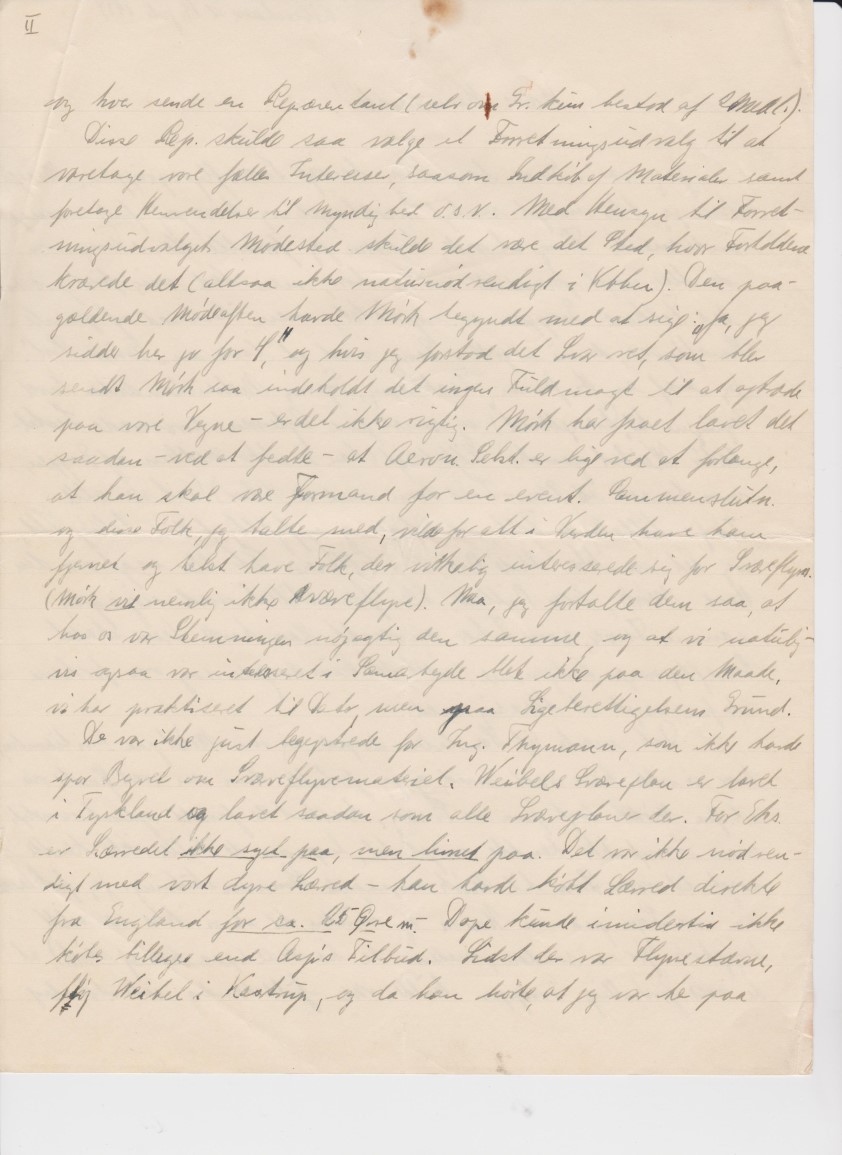 II
og hver sende en Repræsentant (selv om Gr. kun bestod af 2 Medl.).
Disse Rep. skulde saa vælge et Forretningsudvalg til at
varetage vore fælles Interesser, saasom Indkøb af Materialer samt
foretage Henvendelser til Myndighed o.s.v. Med Hensyn til Forret-
ningsudvalgets Mødested skulde det være det Sted, hvor Forholdene
krævede det (altsaa ikke naturnødvendigt i Kbhn). Den paa-
gældende Mødeaften havde Mörk begyndt med at sige: "Ja, jeg
sidder her jo for 4," og hvis jeg forstod det Svar ret, som blev
sendt Mörk saa indeholdt det ingen Fuldmagt til at optræde
paa vore Vegne - er det ikke rigtig. Mörk har faaet lavet det
saadan - ved at fedte - at Aeron. Selsk. er lige ved at forlange,
at han skal være Formand for en event. Sammenslutn.
og disse Folk, jeg talte med, vilde for alt i Verden have ham
fjernet og helst have Folk, der virkelig interesserede sig for Svæveflyvn.
(Mörk vil nemlig ikke svæveflyve). Naa, jeg fortalte dem saa, at
hos os var Stemningen nøjagtig den samme, og at vi naturlig-
vis ogsaa var interesseret i Samarbejde blot ikke paa den Maade,
vi har praktiseret til Dato, men paa Ligeberettigelsens Grund.
De var ikke just begejstrede for Ing. Thymann, som ikke havde
spor Begreb om Svæveflyvemateriel. Weibels Svæveplan er lavet
i Tyskland og lavet saadan som alle Svæveplaner der. For Eks.
er Lærredet ikke syet paa, men limet paa. Det var ikke nødven-
digt med vort dyre Lærred - han havde købt Lærred direkte
fra England for ca. 25 Øre m. Dope kunde imidlertid ikke
købes billigere end Asp's Tilbud. Sidst der var Flyvestævne,
fløj Weibel i Kastrup, og da han hørte, at jeg var te paa